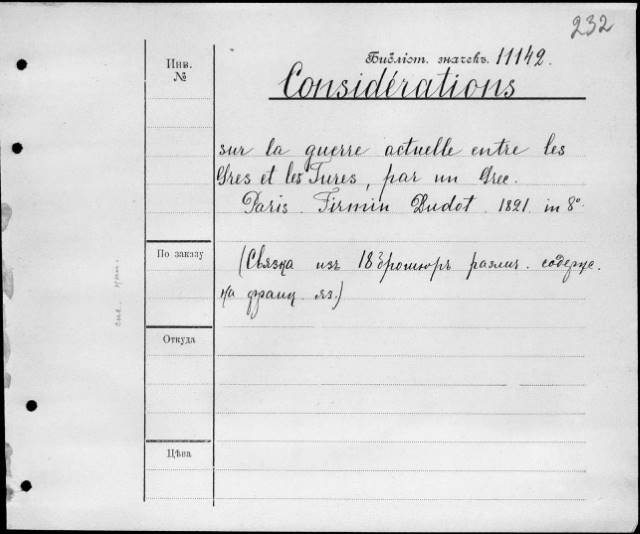 232
Инв.
№
Библіот. значекъ. 11142.
Considérations
sur la guerre actuelle entre les
Gres et les Tures, par un Grec.
Paris. Firmin Dudot. 1821. in 8°.
По заказу
(Связка изъ 18 брошюръ различ. содерж.
на франц. яз.)
Откуда
Цѣна